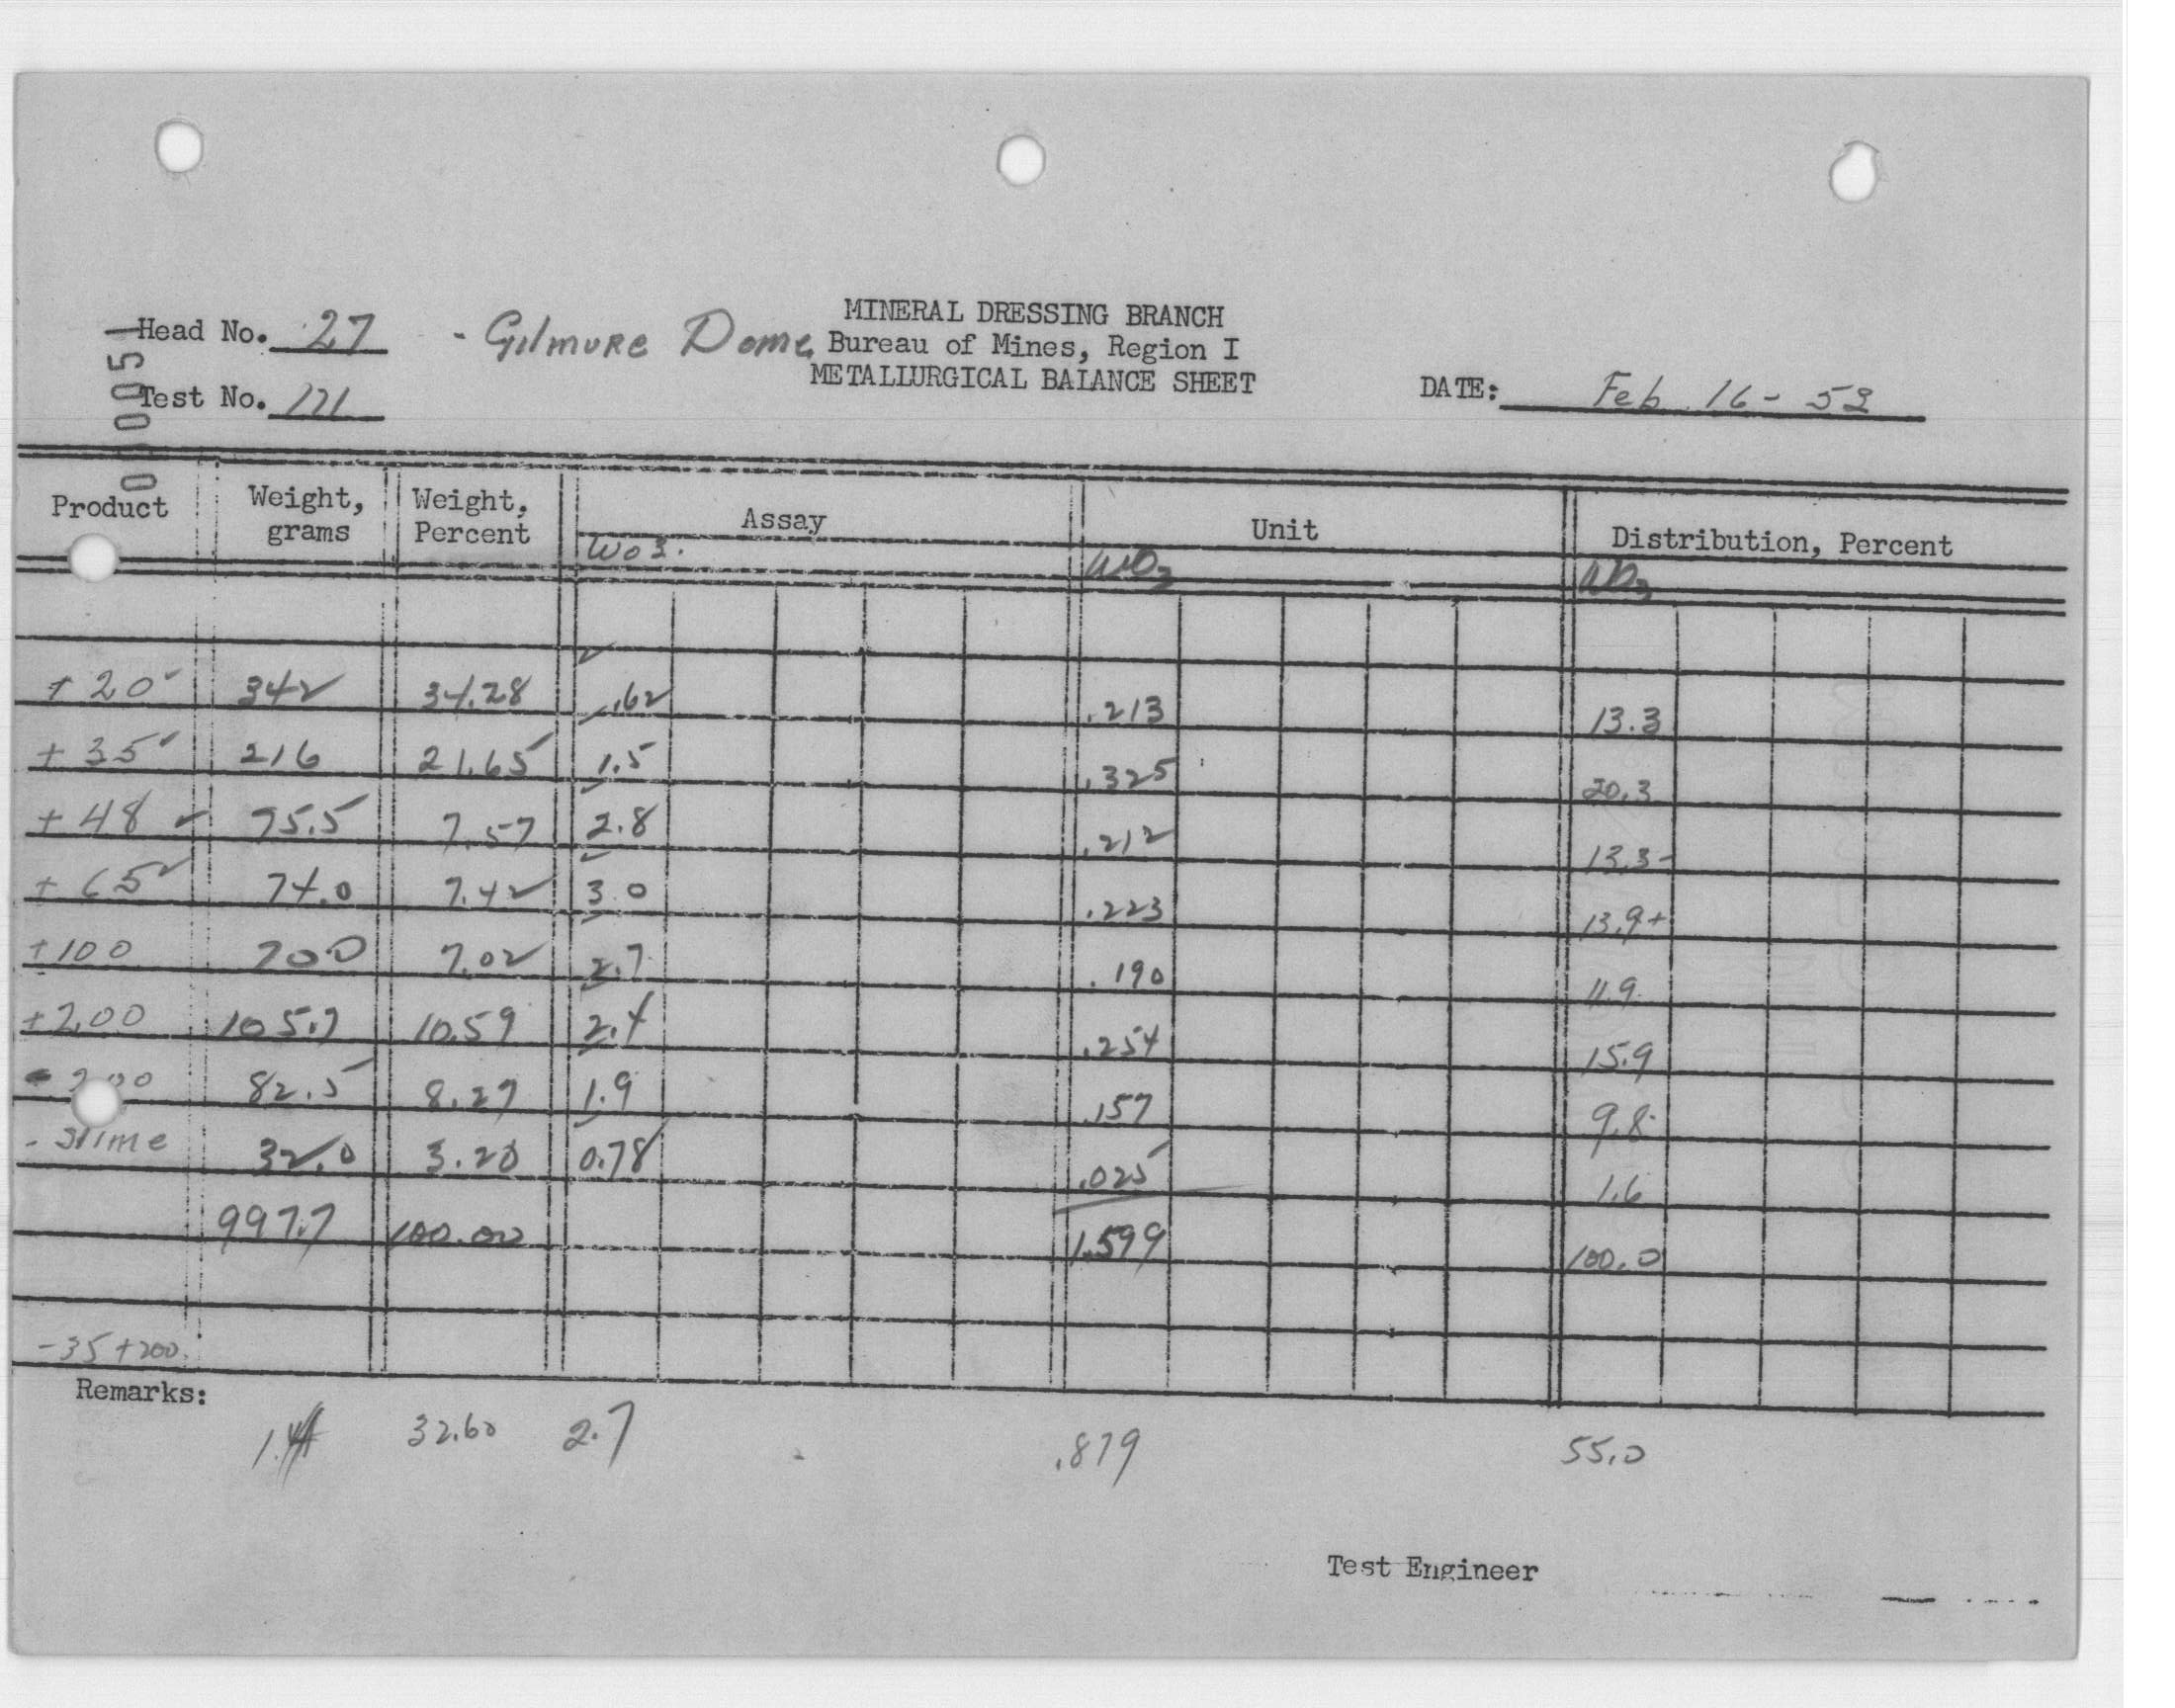 MINERAL DRESSING BRANCH
Head No. 27 - Gilmore Dome Bureau of Mines, Region I
METALLURGICAL BALANCE SHEET
Test No. 121 DATE: Feb 16-53
000051
Product Weight, grams Weight, Percent Assay Unit Distribution, Percent
WO3. WO3 WO3
+20 342 34.28 .62 .213 13.3
+35 216 21.65 1.5 .325 20.3
+48 75.5 7.57 2.8 .212 13.3-
+65 74.0 7.42 3.0 .223 13.9+
+100 70.0 7.02 2.7 .190 11.9
+200 105.7 10.59 2.4 .254 15.9
-200 82.5 8.27 1.9 .157 9.8
- Slime 32.0 3.20 0.78 .025 1.6
997.7 100.00 1.599 100.0
-35+200.
Remarks:
32.60 2.7 .879 55.0
Test Engineer